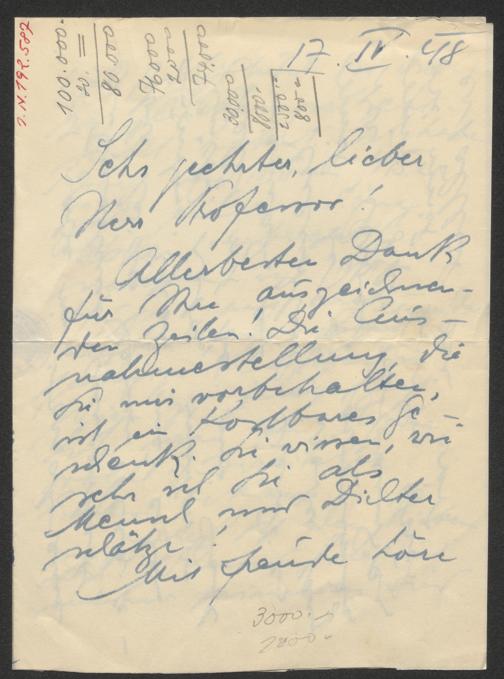 I.N.199.587
100.000.-
20.
80 000
17. IV. 48
Sehr geehrter, lieber
Herr Professor!
Allerbesten Dank
für Ihre auszeichnen-
den Zeilen! Die Aus-
nahmestellung, die
Sie mir vorbehalten,
ist ein kostbares Ge-
schenk. Sie wissen, wie
sehr ich Sie als
Mensch und Dichter
schätze!
Mit Freude höre
3000.-